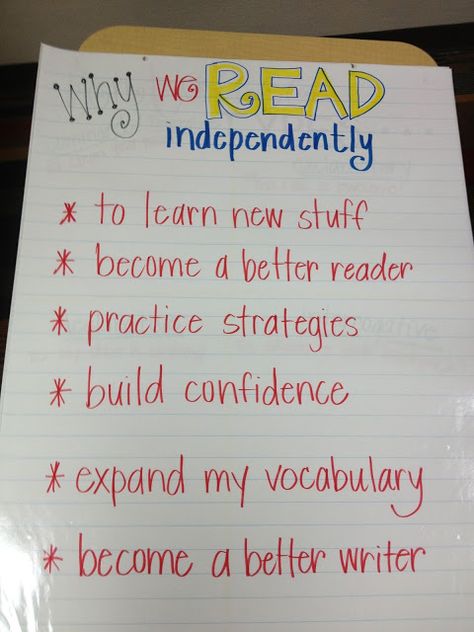 Why we READ
independently
* to learn new stuff
* become a better reader
* practice strategies
* build confidence
* expand my vocabulary
* become a better writer